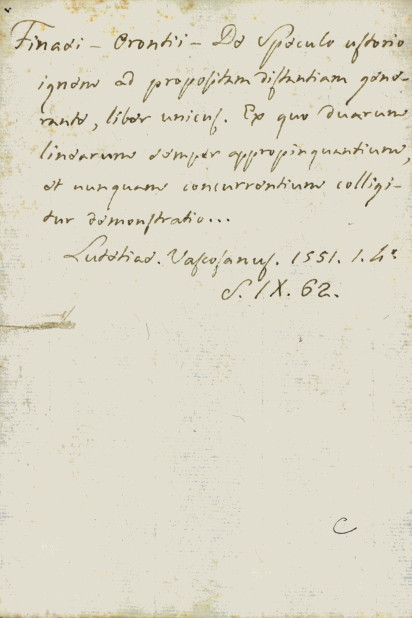 Finaei - Orontii - De Speculo ustorio
ignem ad propositam distantiam gene-
rante, liber unicus. Ex quo duarum
linearum semper appropinquantium,
et nunquam concurrentium colligi-
tur demonstratio...
Lutetiae. Vascosanus. 1551. 1. 4º
S. IX. 62.
C